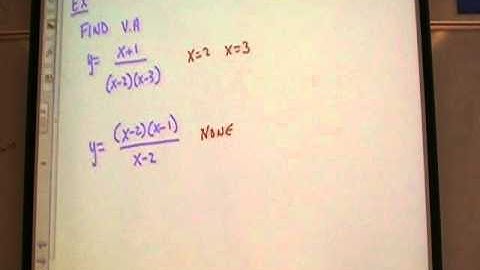 EX
FIND V.A
y= x+1 / (x-2)(x-3) x=2 x=3
y= (x-2)(x-1) / x-2 NONE